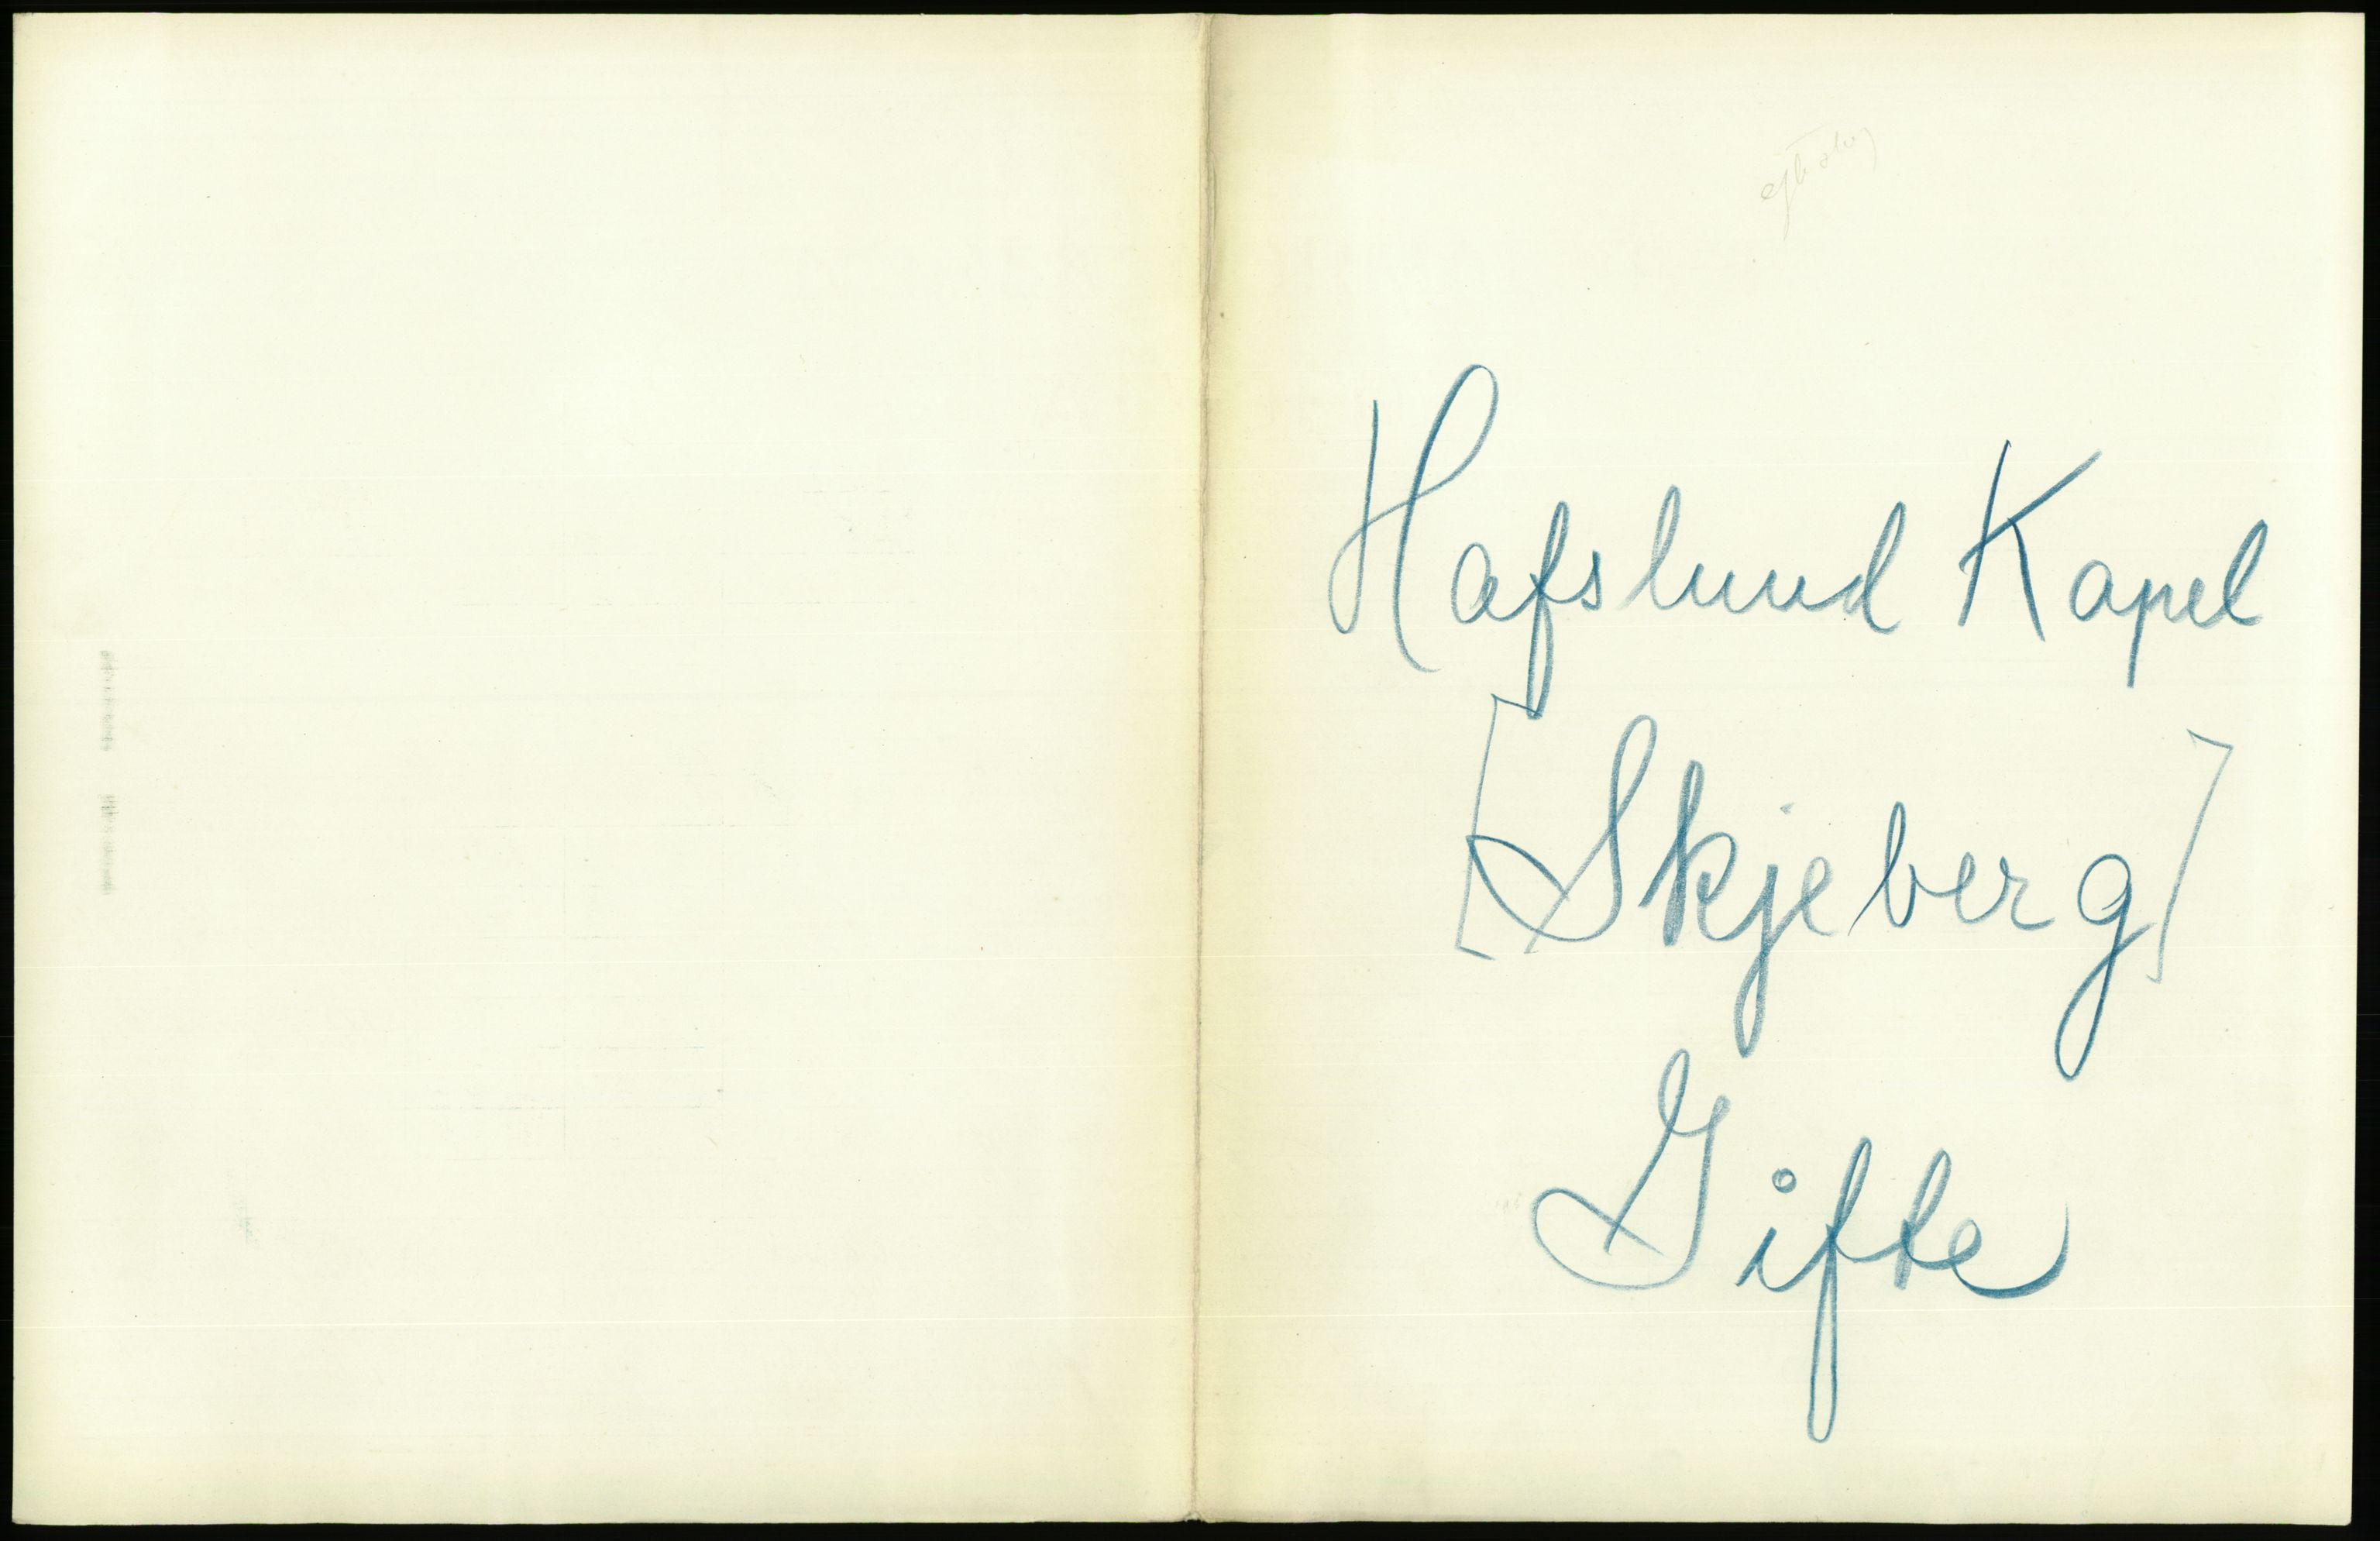 Hafslund Kapel
[Skjeberg]
Gifte